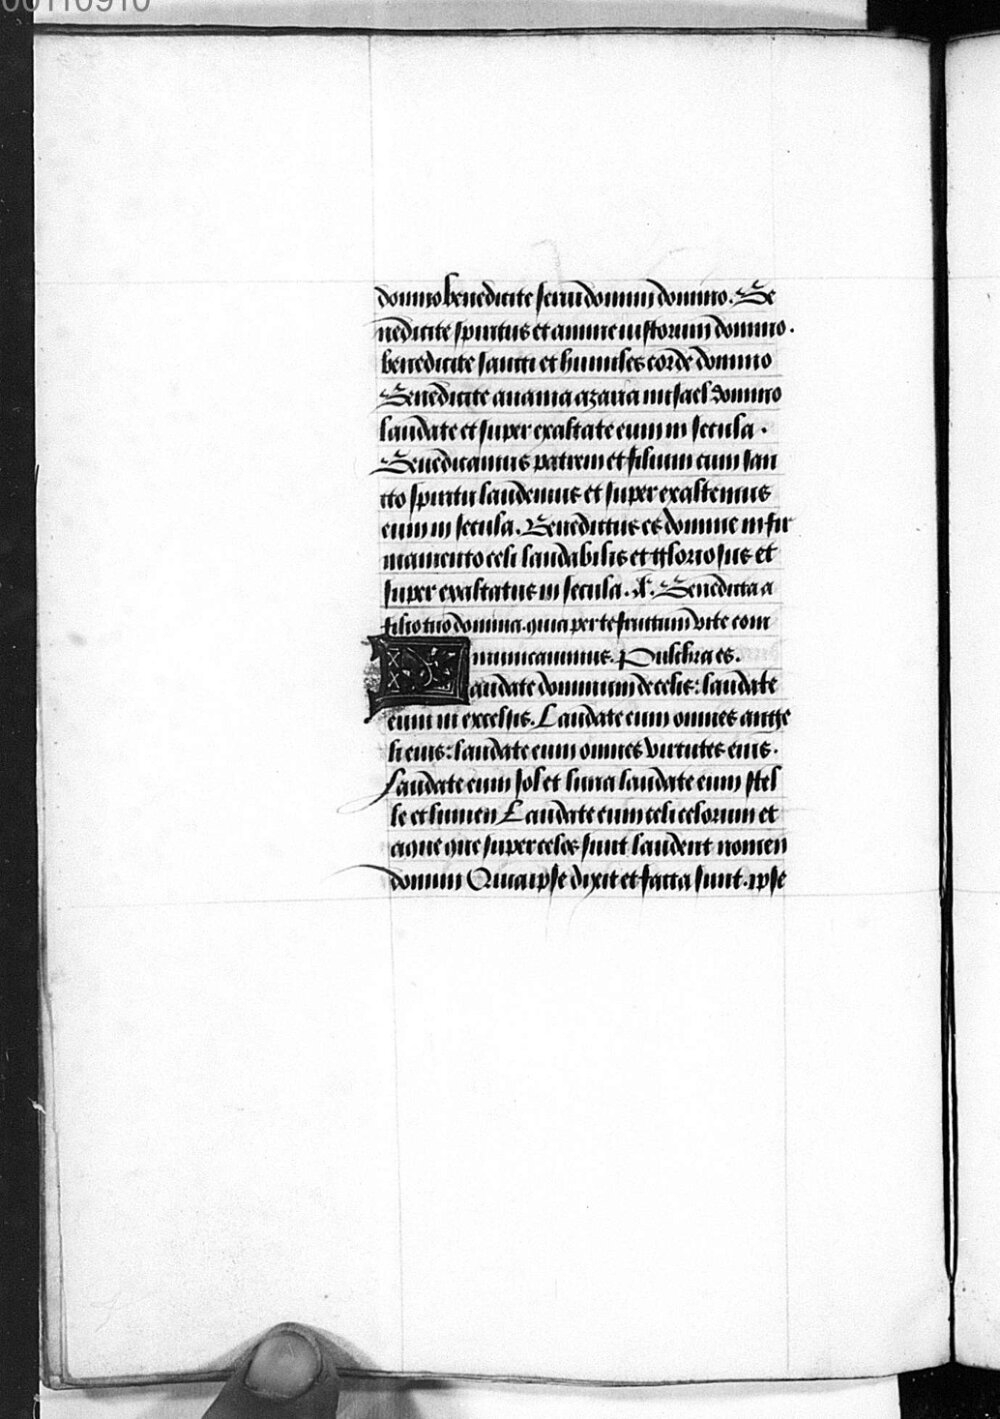 00110910
domino benedicite serui domini domino. Be
nedicite spiritus et anime iustorum domino.
benedicite sancti et humiles corde domino
Benedicite anania azaria misael domino
laudate et super exaltate eum in secula.
Benedicamus patrem et filium cum san
cto spiritu laudemus et super exaltemus
eum in secula. Benedictus es domine in fir
mamento celi laudabilis et gloriosus et
super exaltatus in secula. A. Benedicta a
filio tuo domina. quia per te fructum vite com
municauimus. Pulchra es.
Laudate dominum de celis: laudate
eum in excelsis. Laudate eum omnes ange
li eius: laudate eum omnes virtutes eius.
Laudate eum sol et luna laudate eum stel
le et lumen Laudate eum celi celorum et
aque que super celos sunt laudent nomen
domini Quia ipse dixit et facta sunt. ipse